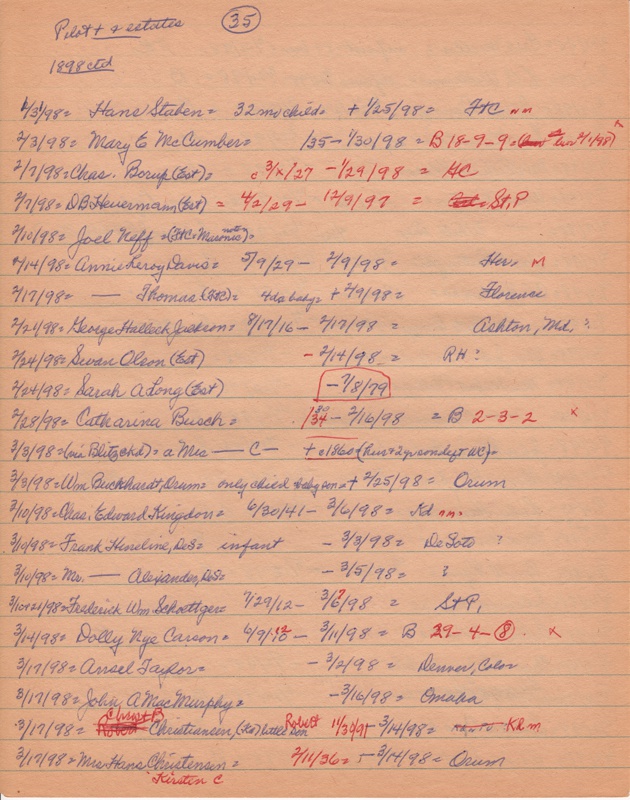 Pilot + & estates 35
1898 ctd
2/3/98 = Hans Staben = 32 mo child = + 1/25/98 = Ft C nm
2/3/98 = Mary E McCumber = 1/35 - 1/30/98 = B 18-9-9 = x
2/7/98 = Chas. Borup (Est) = c 3/x/27 - 1/29/98 = HC
2/7/98 = DB Heuermann (Est) = 4/2/29 - 12/9/97 = St. P
2/10/98 = Joel Neff = (Ft C + Masonic notes) =
2/14/98 = Annie Leroy Davis = 5/9/29 - 2/9/98 = Her = M
2/17/98 = — Thomas (Ft C) = 4 da baby = + 2/9/98 = Florence
2/24/98 = George Hallock Jackson = 8/17/16 - 2/17/98 = Ashton, Md. ?
2/24/98 = Swan Olson (Est) - 2/14/98 = RH ?
2/24/98 = Sarah A Long (Est) - 7/8/79
2/28/98 = Catharina Busch = 1/34 30 - 2/16/98 = B 2-3-2 x
3/3/98 = (via Blitz chd) = a Mrs — C — + c 1860
3/3/98 = Wm Buckhardt, Orum = only child + 2/25/98 = Orum
3/10/98 = Chas. Edward Kingdon = 6/30/41 - 3/6/98 = Kd nm
3/10/98 = Frank Hineline, DeS = infant - 3/3/98 = DeSoto ?
3/10/98 = Mr. — Alexander, DeS = - 3/5/98 = ?
3/10+21/98 = Frederick Wm Schoettger = 7/29/12 - 3/7/98 = St P,
3/14/98 = Dolly Nye Carson = 6/9/10 12 - 3/11/98 = B 29-4-8 x
3/17/98 = Ansel Taylor = - 3/2/98 = Denver, Color
3/17/98 = John A MacMurphy = - 3/16/98 = Omaha
Christ B
3/17/98 = Robert Christiansen, little son Robert 11/30/91 - 3/14/98 = Kd m
3/17/98 = Mrs Hans Christensen = 2/11/36 = - 3/14/98 = Orum
Kirstin C